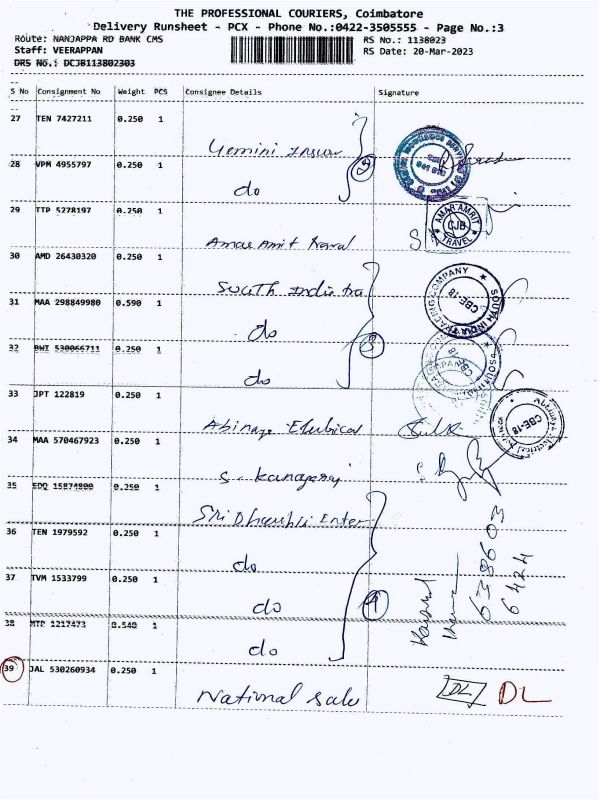 THE PROFESSIONAL COURIERS, Coimbatore
Delivery Runsheet - PCX - Phone No.:0422-3505555 - Page No.:3
Route: NANJAPPA RD BANK CMS
RS No.: 1138023
Staff: VEERAPPAN
RS Date: 20-Mar-2023
DRS No.: DCJB113802303
S No Consignment No Weight PCS Consignee Details Signature
27 TEN 7427211 0.250 1
Gemini Insur
28 VPM 4955797 0.250 1
do 2
29 TTP 5278197 0.250 1
AMAR AMRIT
CJB
TRAVEL
Amar Amit Raval
30 AMD 26430320 0.250 1
South India tra
SOUTH INDIA TRADING COMPANY
CBE-18
31 MAA 298849980 0.590 1
do 3
32 BWI 530066711 0.250 1
do
33 JPT 122819 0.250 1
Abinaya Eletrical
CBE-18
34 MAA 570467923 0.250 1
S. Kanagaraj
35 EDQ 15874800 0.250 1
Sri Dharshri Enter
36 TEN 1979592 0.250 1
do
37 TVM 1533799 0.250 1
do 4
638603
6424
38 MTP 1217473 0.540 1
do
39 JAL 530260934 0.250 1
National sale DL DL